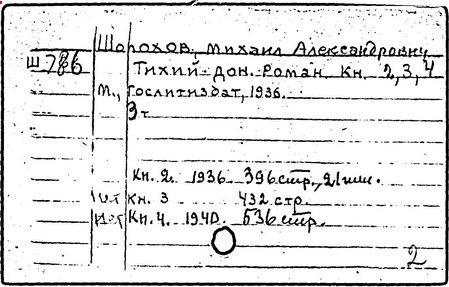 Шолохов, Михаил Александрович
Ш 786 Тихий Дон. Роман. Кн. 2, 3, 4
М., Гослитиздат, 1936.
3 т
Кн. 2. 1936 396 стр., 21 илл.
Кн. 3 432 стр.
Кн. 4. 1940. 536 стр.
2